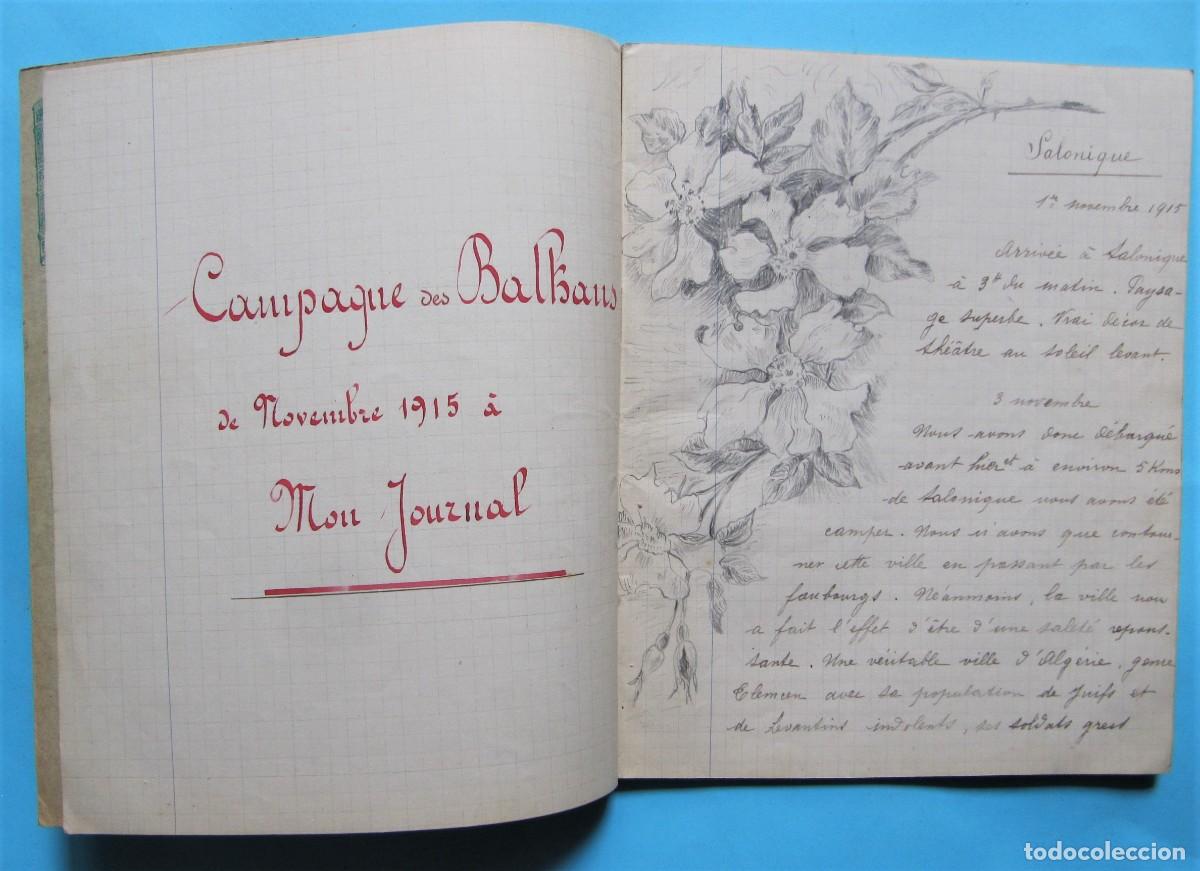 Campagne des Balkans
de Novembre 1915 à
Mon Journal
Salonique
1er novembre 1915
Arrivée à Salonique
à 3h du matin. Paysa-
ge superbe. Vrai décor de
théâtre au soleil levant.
3 novembre
Nous avons donc débarqué
avant hier et à environ 5 Kms
de Salonique nous avons été
camper. Nous n'avons que contour-
ner cette ville en passant par les
faubourgs. Néanmoins, la ville nou
a fait l'effet d'être d'une saleté repous-
sante. Une véritable ville d'Algérie, genre
Tlemcen avec sa population de Juifs et
de Levantins indolents, ses soldats grecs
todocoleccion